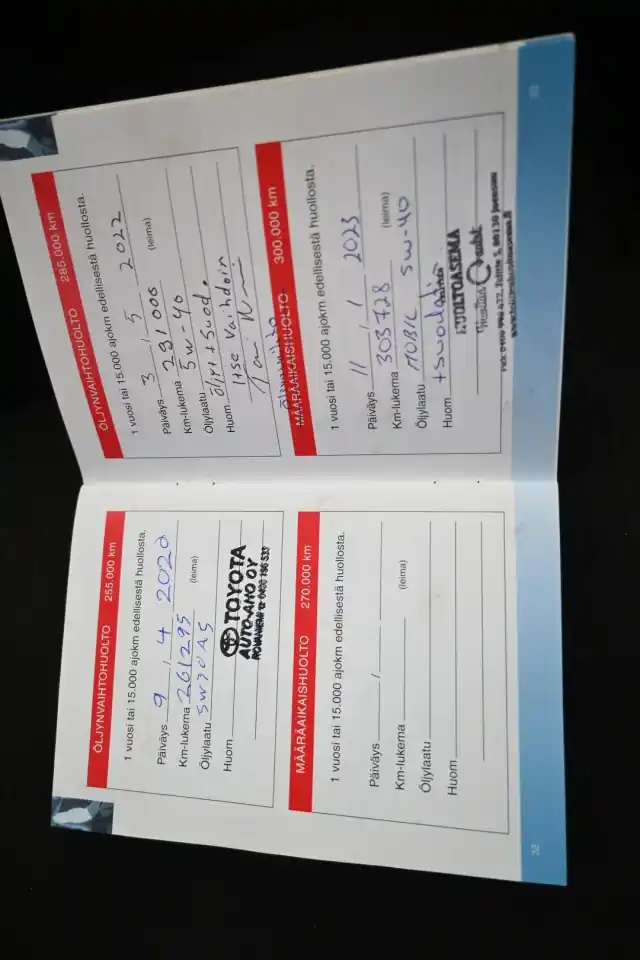 ÖLJYNVAIHTOHUOLTO 255.000 km
1 vuosi tai 15.000 ajokm edellisestä huollosta.
Päiväys 9 / 4 2020
Km-lukema 261295 (leima)
Öljylaatu 5W30 A5
Huom
TOYOTA
AUTO-AHO OY
ROVANIEMI
MÄÄRÄAIKAISHUOLTO 270.000 km
1 vuosi tai 15.000 ajokm edellisestä huollosta.
Päiväys /
Km-lukema (leima)
Öljylaatu
Huom
32
ÖLJYNVAIHTOHUOLTO 285.000 km
1 vuosi tai 15.000 ajokm edellisestä huollosta.
Päiväys 3 / 5 2022
Km-lukema 291006 (leima)
Öljylaatu 5w-40
Huom öljyt + suod.
Itse vaihdoin
MÄÄRÄAIKAISHUOLTO 300.000 km
1 vuosi tai 15.000 ajokm edellisestä huollosta.
Päiväys 11 / 1 2023
Km-lukema 303728 (leima)
Öljylaatu MOBIL 5w-40
Huom + suodatin
HUOLTOASEMA
33